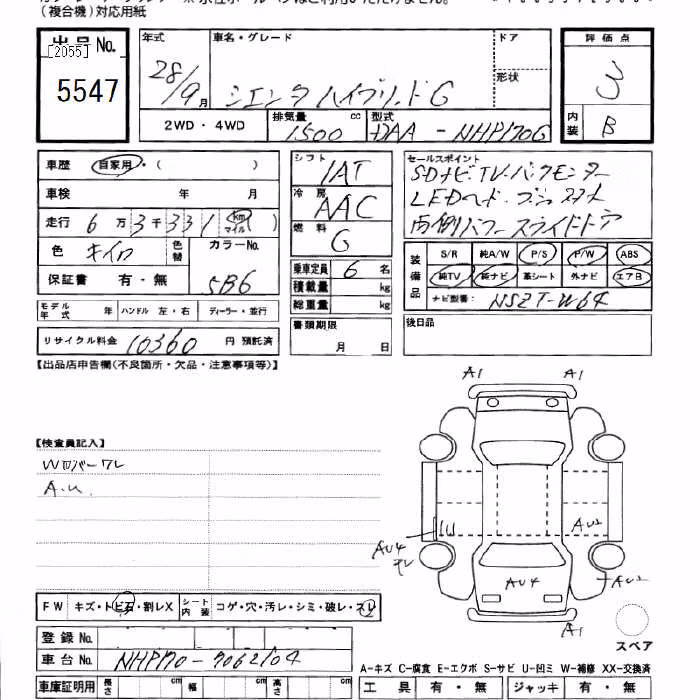 (複合機)対応用紙
出品No.
[2055]
5547
年式
28/9月
車名・グレード
シエンタ ハイブリッド G
ドア
形状
評価点
3
内装
B
2WD・4WD
排気量
1500 cc
型式
DAA - NHP170G
車歴 自家用・( )
車検 年 月
走行 6万3千331(km マイル)
色 キイロ 色替
カラーNo.
5B6
保証書 有・無
モデル年式 年 ハンドル 左・右 ディーラー・並行
リサイクル料金 10360 円 預託済
シフト
IAT
冷房
AAC
燃料
G
乗車定員 6 名
積載量 kg
総重量 kg
書類期限
月 日
セールスポイント
SDナビ・TV・バックモニター
LEDヘッド・プッシュスタート
両側パワースライドドア
装備品
S/R 純A/W P/S P/W ABS
純TV 純ナビ 革シート 外ナビ エアB
ナビ型番: NSZT-W64
後日品
【出品店申告欄(不良箇所・欠品・注意事項等)】
【検査員記入】
Wロバーワレ
A.U.
A1
A1
AU4
1U
AU2
AU2
AU4
A1
スペア
FW キズ・トビ石・割レX シート内装 コゲ・穴・汚レ・シミ・破レ・スレ
登録No.
車台No. NHP170-7062104
車庫証明用 長さ cm 幅 cm 高さ cm
A-キズ C-腐食 E-エクボ S-サビ U-凹ミ W-補修 XX-交換済
工具 有・無 ジャッキ 有・無